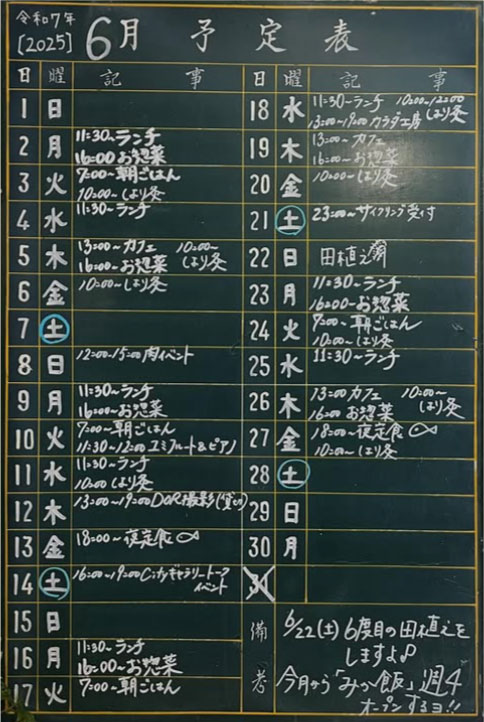 令和7年
[2025]
6月 予定表
日 曜 記 事
1 日
2 月 11:30~ランチ
16:00お惣菜
3 火 7:00~朝ごはん
10:00~はり灸
4 水 11:30~ランチ
5 木 13:00~カフェ 10:00~
16:00~お惣菜 はり灸
6 金 10:00~はり灸
7 土
8 日 12:00~15:00肉イベント
9 月 11:30~ランチ
16:00~お惣菜
10 火 7:00~朝ごはん
11:30~12:00 フルート&ピアノ
11 水 11:30~ランチ
10:00はり灸
12 木 13:00~19:00DOR撮影(貸切)
13 金 18:00~夜定食
14 土 16:00~19:00Cityギャラリートーク
イベント
15 日
16 月 11:30~ランチ
16:00~お惣菜
17 火 7:00~朝ごはん
日 曜 記 事
18 水 11:30~ランチ 10:00~12:00
13:00~19:00カラダ工房 はり灸
19 木 13:00~カフェ
16:00~お惣菜
20 金 10:00~はり灸
21 土 23:00~サイクリング受付
22 日 田植え
23 月 11:30~ランチ
16:00~お惣菜
24 火 7:00~朝ごはん
10:00~はり灸
25 水 11:30~ランチ
26 木 13:00カフェ 10:00~
16:00お惣菜 はり灸
27 金 18:00~夜定食
10:00~はり灸
28 土
29 日
30 月
31
備考
6/22(土)6度目の田植えを
しますよ♪
今月から「みつ飯」週4
オープンするヨ!!